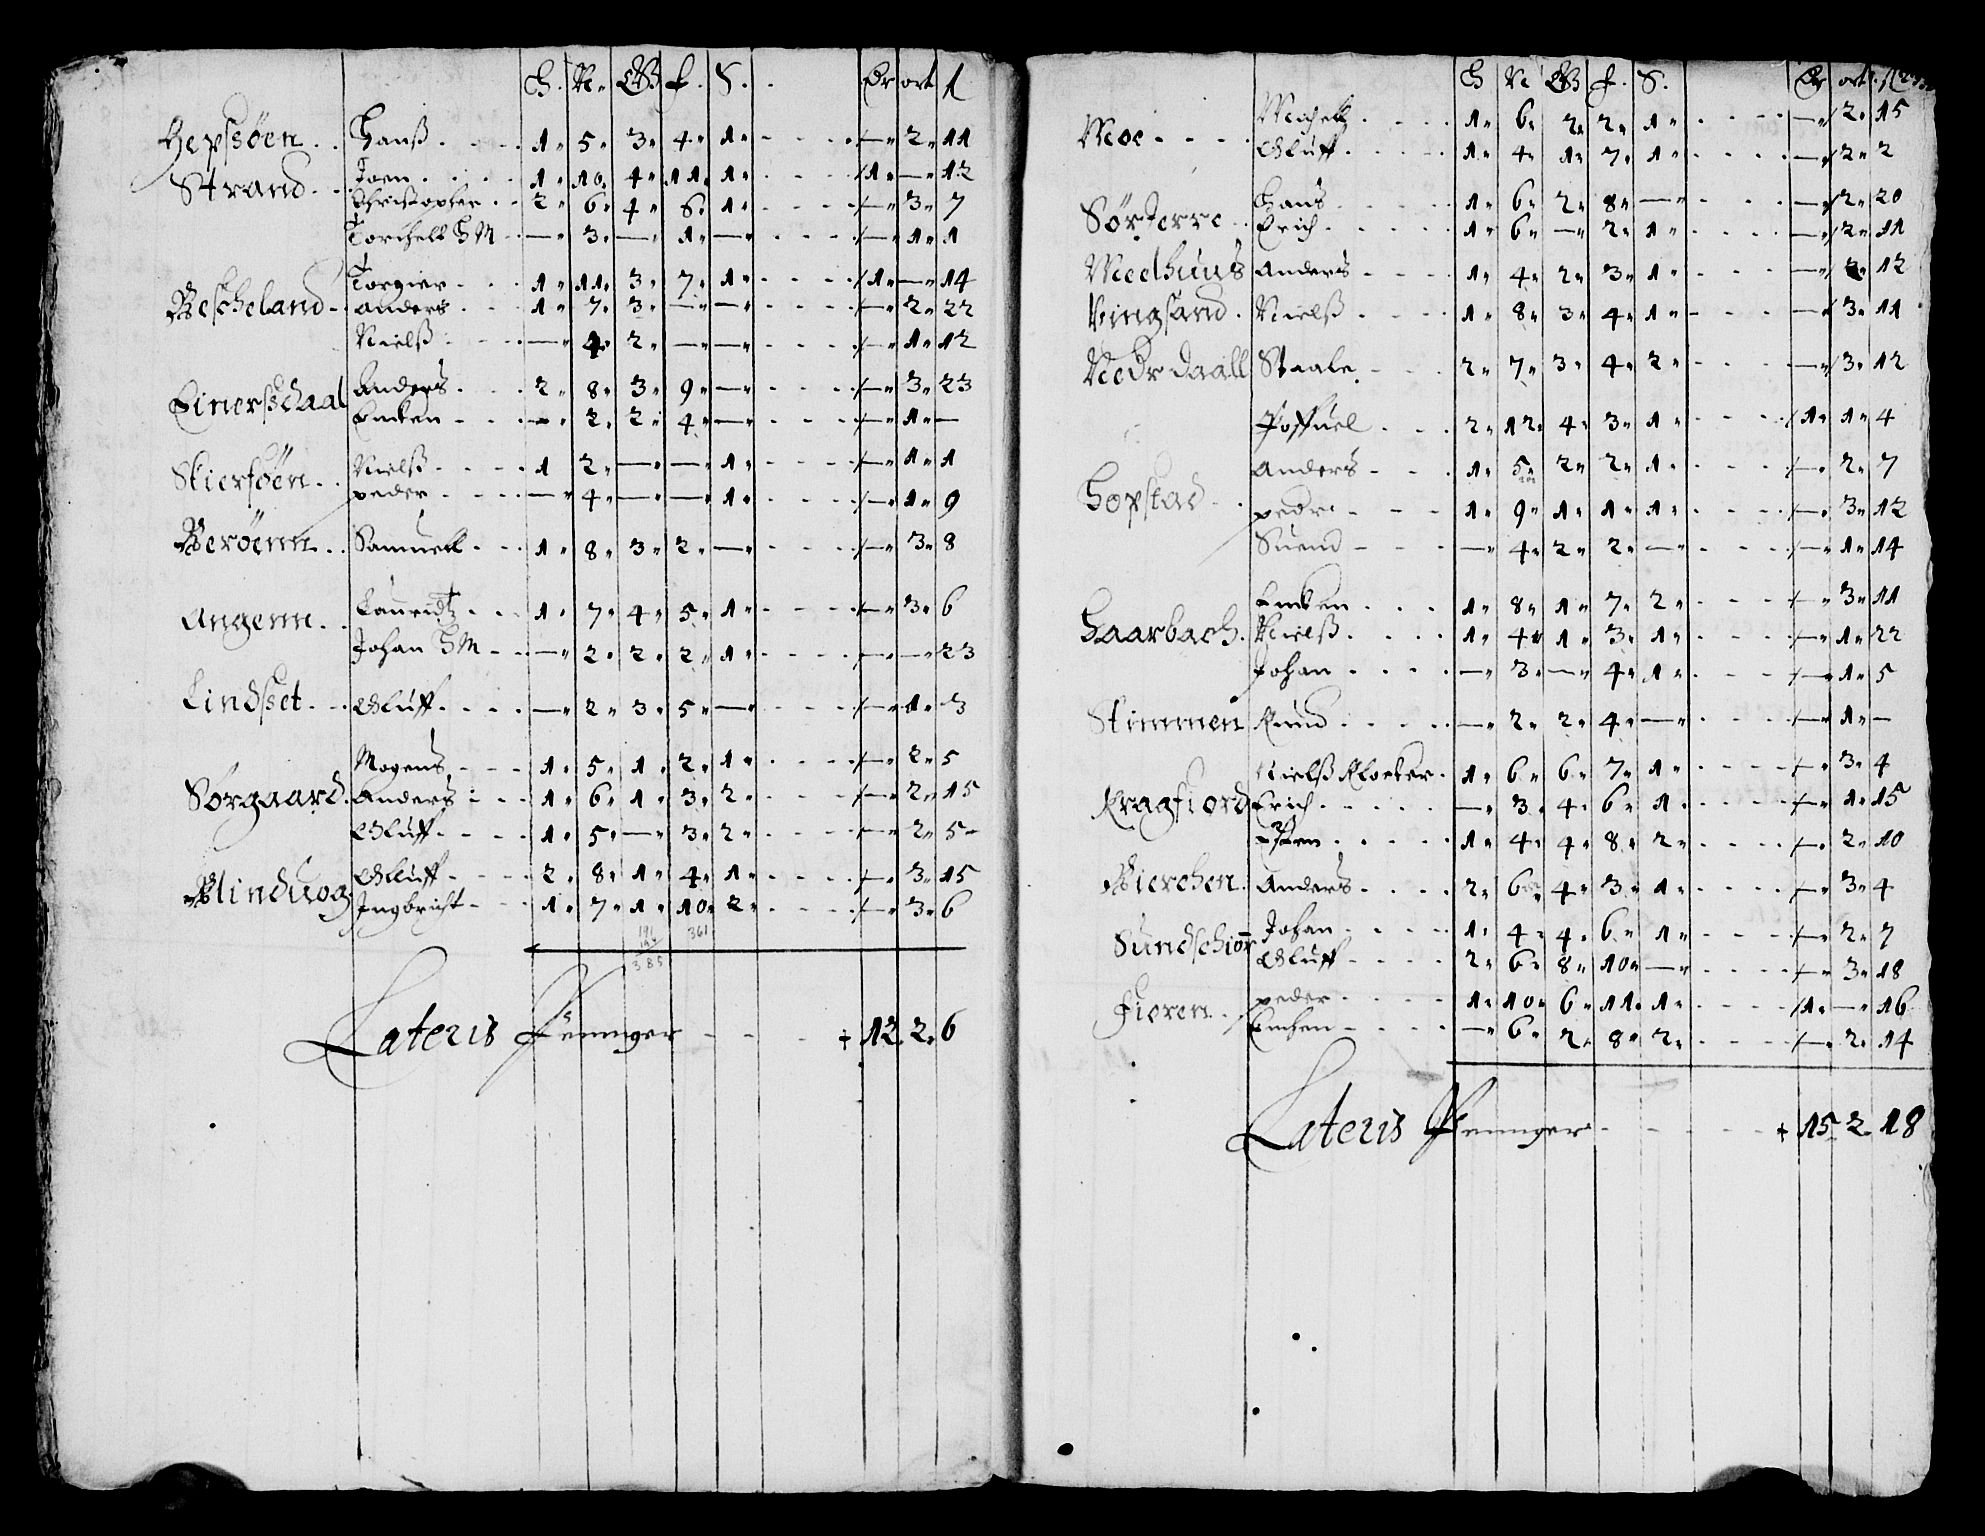 H. N. G. f. S. Dr ort ſ
Hepsöen Hanß 1 5 3 4 1 — 2 11
Strand Joen 1 10 4 11 1 1 — 12
Christopher 2 6 4 6 1 — 3 7
Torchell HM — 3 — 1 — — 1 1
Bescheland Torgier 1 11 3 7 1 1 — 14
Anders 1 7 3 — — — 2 22
Nielß — 4 2 — — — 1 12
Einerßdaal Anders 2 8 3 9 — — 3 23
Encken — 2 2 4 — — 1 —
Skiersöen Nielß 1 2 — — 1 — 1 1
peder — 4 — — 1 — 1 9
Beröenn Samuell 1 8 3 2 — — 3 8
Angenn Lauridtz 1 7 4 5 1 — 3 6
Johan HM — 2 2 2 1 — — 23
Lindset Oluff — 2 3 5 — — 1 3
Mogens 1 5 1 2 1 — 2 5
Sorgaard Anders 1 6 1 3 2 — 2 15
Oluff 1 5 — 3 2 — 2 5
Oluff 2 8 1 4 1 — 3 15
Ingbricht 1 7 1 10 2 — 3 6
361
385
Lateris Penninger + 12 2 6
H N G f. S. Dr ort ſ
Moe Michell 1 6 2 2 1 — 2 15
Oluff 1 4 1 7 1 — 2 2
Sörterre Hans 1 6 2 8 — — 2 20
Erich 1 6 — 2 1 — 2 11
Meelhuus Anders 1 4 2 3 1 — 2 12
Vingsand Nielß 1 8 3 4 1 — 3 11
Nedrdaall Staale 2 7 3 4 2 — 3 12
2 12 4 3 1 1 1 4
Hopstad Anders 1 5 2 2 1 — 2 7
pedr 1 9 1 1 1 — 3 12
Suend — 4 2 2 — — 1 14
Haarbach Encken 1 8 1 7 2 — 3 11
Nielß 1 4 1 3 1 — 1 22
Johan — 3 — 4 1 — 1 5
Stimmen Knud — 2 2 4 — — 1 —
Nielß Klocker 1 6 6 7 1 — 3 4
Kragfiord Erich — 3 4 6 1 — 1 15
Isten 1 4 4 8 2 — 2 10
Bierchen Anders 2 6 4 3 1 — 3 4
Sundschior Johan 1 4 4 6 1 — 2 7
Oluff 2 6 8 10 — — 3 18
Fieren peder 1 10 6 11 1 1 — 16
Encken — 6 2 8 2 — 2 14
Lateris Penninger + 15 2 18